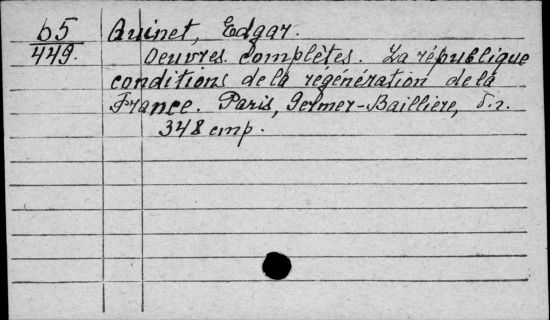 65 Quinet, Edgar.
449. Oeuvres complètes. La république
conditions de la régénération de la
France. Paris, Germer-Baillière, s.d.
348 cmp.